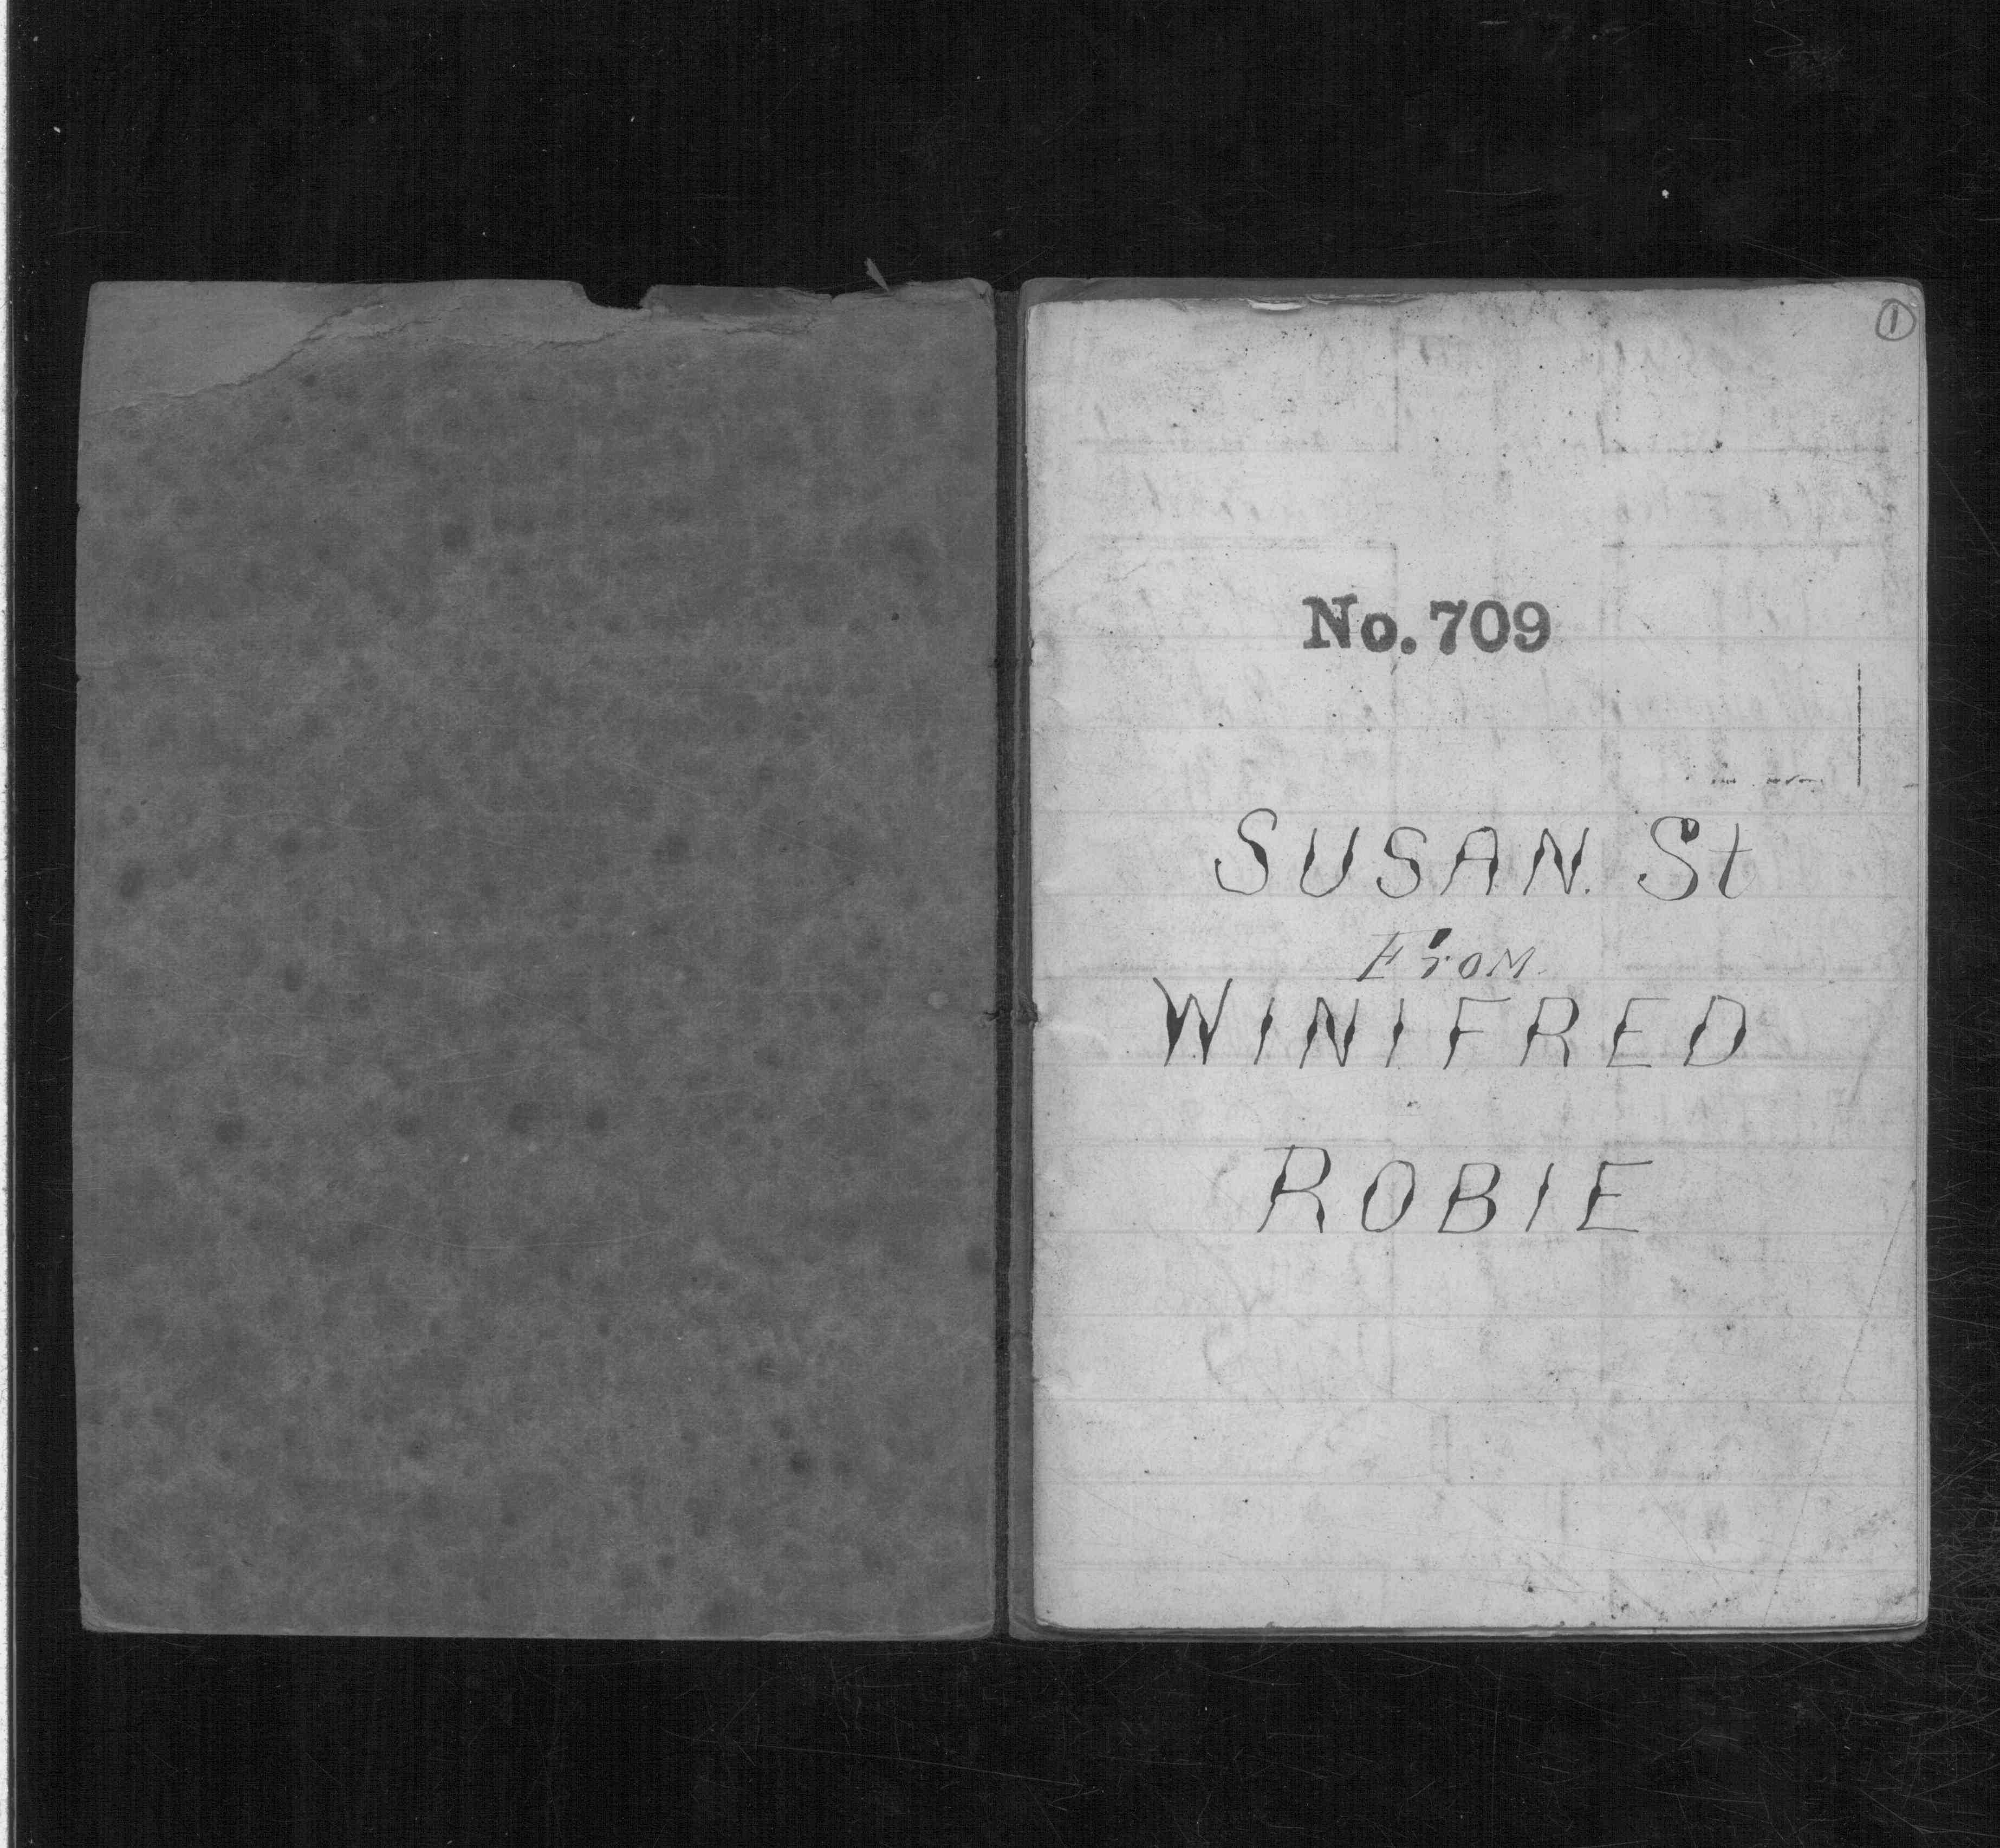 1
No. 709
SUSAN. St
From
WINIFRED
ROBIE